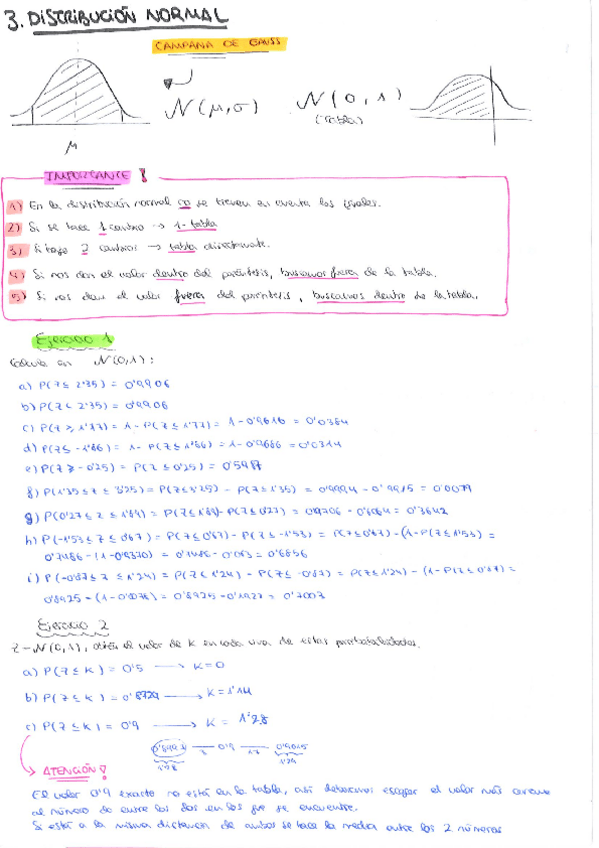 3. DISTRIBUCIÓN NORMAL
CAMPANA DE GAUSS
N(μ,σ)
N(0,1)
(tabla)
μ
IMPORTANTE !
1) En la distribución normal no se tienen en cuenta los iguales.
2) Si se hace 1 cambio → 1-tabla
3) Si hago 2 cambios → tabla directamente.
4) Si nos dan el valor dentro del paréntesis, buscamos fuera de la tabla.
5) Si nos dan el valor fuera del paréntesis, buscamos dentro de la tabla.
Ejercicio 1
Calcula en N(0,1):
a) P(Z ≤ 2'35) = 0'9906
b) P(Z < 2'35) = 0'9906
c) P(Z ≥ 1'77) = 1 - P(Z ≤ 1'77) = 1 - 0'9616 = 0'0384
d) P(Z ≤ -1'86) = 1 - P(Z ≤ 1'86) = 1 - 0'9686 = 0'0314
e) P(Z ≥ -0'25) = P(Z ≤ 0'25) = 0'5987
f) P(1'35 ≤ Z ≤ 3'25) = P(Z ≤ 3'25) - P(Z ≤ 1'35) = 0'9994 - 0'9115 = 0'0879
g) P(0'27 ≤ Z ≤ 1'89) = P(Z ≤ 1'89) - P(Z ≤ 0'27) = 0'9706 - 0'6064 = 0'3642
h) P(-1'53 ≤ Z ≤ 0'67) = P(Z ≤ 0'67) - P(Z ≤ -1'53) = P(Z ≤ 0'67) - (1 - P(Z ≤ 1'53) =
0'7486 - (1 - 0'9370) = 0'7486 - 0'063 = 0'6856
i) P(-0'87 ≤ Z ≤ 1'24) = P(Z ≤ 1'24) - P(Z ≤ -0'87) = P(Z ≤ 1'24) - (1 - P(Z ≤ 0'87) =
0'8925 - (1 - 0'8078) = 0'8925 - 0'1922 = 0'7003
Ejercicio 2
Z ~ N(0,1), el valor de K en cada una de estas probabilidades.
a) P(Z ≤ K) = 0'5 → K = 0
b) P(Z ≤ K) = 0'8729 → K = 1'14
c) P(Z ≤ K) = 0'9 → K = 1'28
0'8997 3 0'9 17 0'9015
1'28 1'29
ATENCIÓN !
El valor 0'9 exacto no está en la tabla, así debemos escoger el valor más cercano
al número de entre los dos en los que se encuentre.
Si está a la misma distancia de ambos se hace la media entre los 2 números